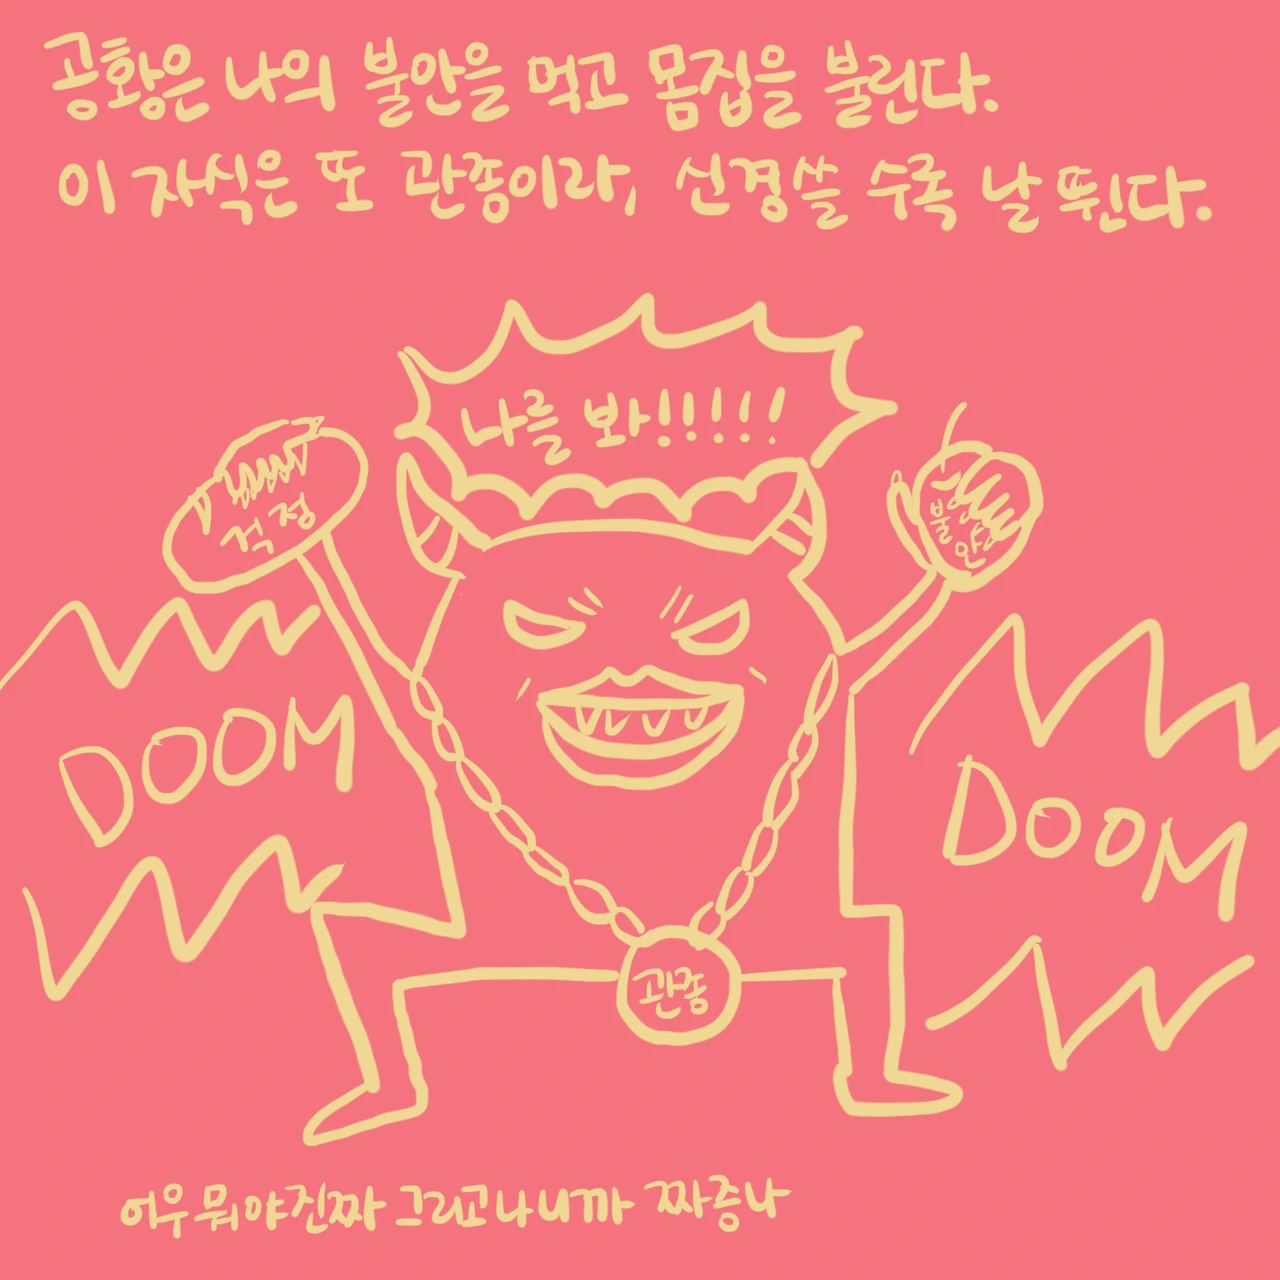 공황은 나의 불안을 먹고 몸집을 불린다.
이 자식은 또 관종이라, 신경쓸 수록 날 뛴다.
나를 봐!!!!!
걱정
불안
DOOM
DOOM
관종
어우 뭐야 진짜 그리고나니까 짜증나